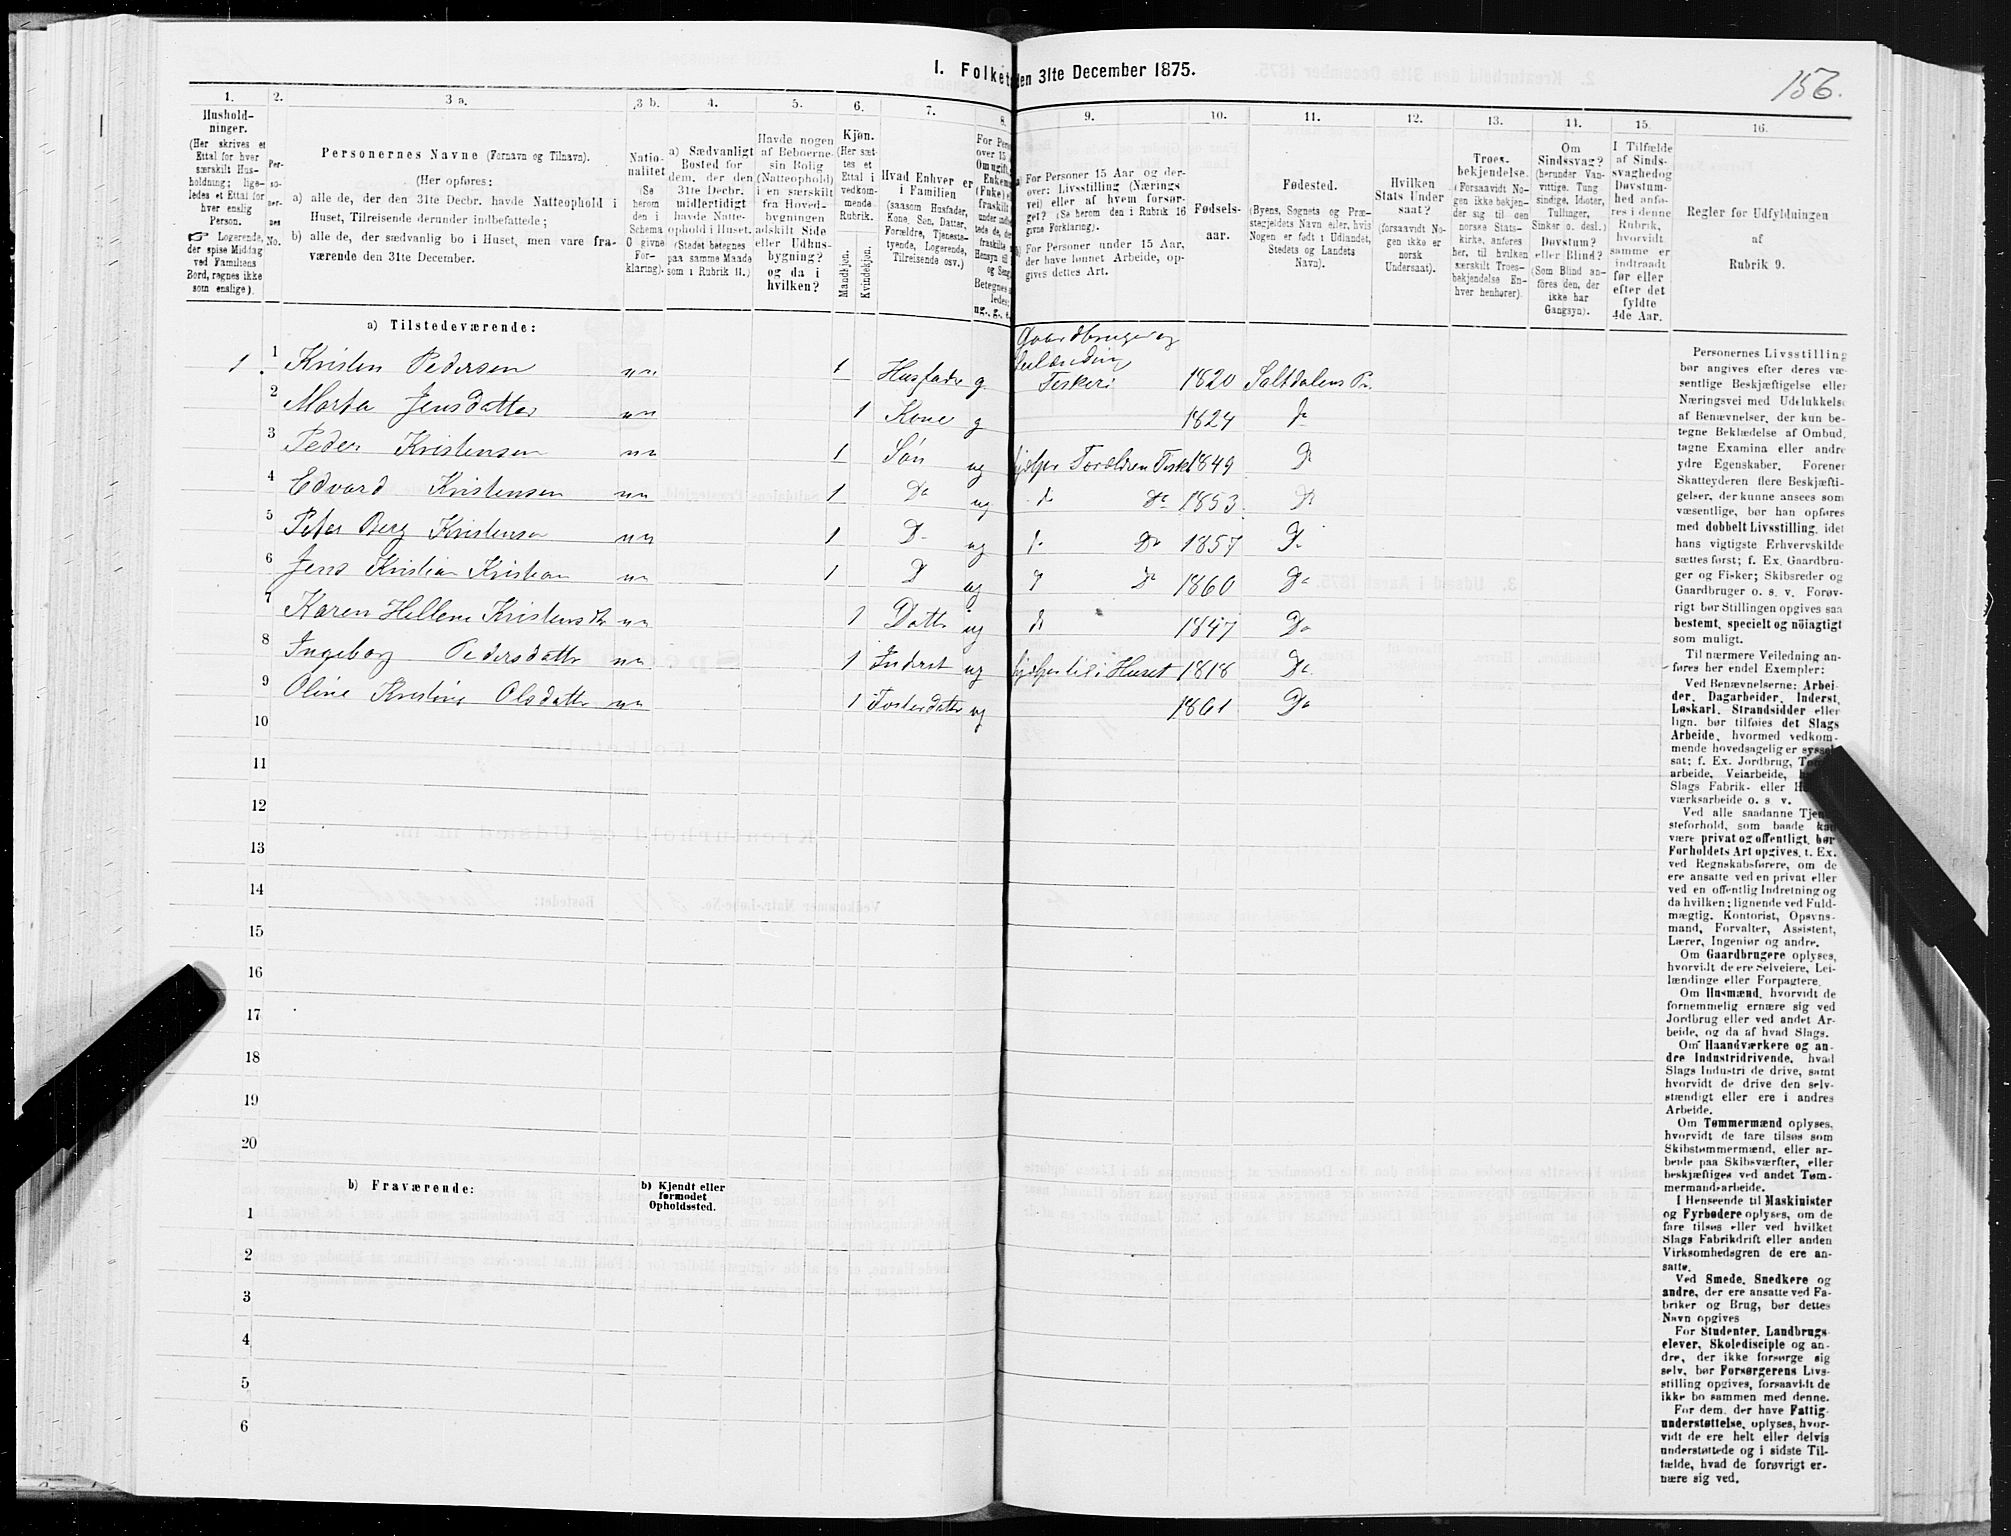 I. Folket den 31te December 1875.
156.
1. 2. 3 a. 3 b. 4. 5. 6. 7. 8. 9. 10. 11. 12. 13. 14. 15. 16.
Hushold-
ninger.
(Her skrives et
Ettal for hver
særskilt Hus-
holdning; lige-
ledes et Ettal for
hver enslig
Person.
☞ Logerende,
der spise Middag
ved Familiens
Bord, regnes ikke
som enslige).
Per-
so-
ner-
nes
No.
Personernes Navne (Fornavn og Tilnavn).
(Her opføres:
a) alle de, der den 31te Decbr. havde Natteophold i
Huset, Tilreisende derunder indbefattede;
b) alle de, der sædvanlig bo i Huset, men vare fra-
værende den 31te December.
Natio-
nalitet
(Se
herom
den i
Schema
O givne
For-
klaring).
a) Sædvanligt
Bosted for
dem, der den
31te Decbr.
midlertidigt
havde Natte-
ophold i Huset.
(Stedet betegnes
paa samme Maade
som i Rubrik 11.)
Havde nogen
af Beboerne
sin Bolig
(Natteophold)
i en særskilt
fra Hoved-
bygningen
adskilt Side
eller Udhus-
bygning?
og da i
hvilken?
Kjøn.
(Her sæt-
tes et
Ettal i
vedkom-
mende
Rubrik.
Mandkjøn.
Kvindekjøn.
Hvad Enhver er
i Familien
(saasom Husfader,
Kone, Søn, Datter,
Forældre, Tjeneste-
tyende, Logerende,
Tilreisende osv.)
For Personer 15 Aar og der-
over: Livsstilling (Nærings
vei) eller af hvem forsør-
get? (Se herom den i Rubrik 16
givne Forklaring).
b) For Personer under 15 Aar,
der have lønnet Arbeide, op-
gives dettes Art.
Fødsels-
aar.
Fødested.
(Byens, Sognets og Præ-
stegjeldets Navn eller, hvis
Nogen er født i Udlandet,
Stedets og Landets
Navn).
Hvilken
Stats Under
saat?
(forsaavidt No-
gen ikke er
norsk
Undersaat).
Troes-
bekjendelse.
(Forsaavidt No-
gen ikke bekjen-
der sig til den
norske Stats-
kirke, anføres
her, til hvilken
særskilt Troes-
bekjendelse En-
hver henhører).
Om
Sindssvag?
(herunder Van-
vittige, Tung
sindige, Idioter,
Tullinger,
Sinker o. desl.)
Døvstum?
eller Blind?
(Som Blind an-
føres den, der
ikke har
Gangsyn).
I Tilfælde
af Sinds-
svaghed og
Døvstum-
hed anfø-
res i denne
Rubrik,
hvorvidt
samme er
indtraadt
før eller
efter det
fyldte
4de Aar.
Regler for Udfyldningen
af
Rubrik 9.
a) Tilstedeværende:
1 1 Kristen Pedersen nn 1 Husfader g Gaardbruger og Fiskeri 1820 Saltdalens Pr.
2 Marta Jensdatter nn 1 Kone g 1824 Do
3 Peder Kristensen nn 1 Søn ug hjelper Forældren Fisk 1849 Do
4 Edvard Kristensen nn 1 Do ug do Do 1853 Do
5 Peter Berg Kristensen nn 1 Do ug do Do 1857 Do
6 Jens Kristian Kristian nn 1 D ug d Do 1860 Do
7 Karen Hellene Kristensdtr nn 1 Datter ug do 1847 Do
8 Ingeborg Pedersdatter nn 1 Inderst ug hjelper til i Huset 1818 Do
9 Oline Kristine Olsdatter nn 1 Fosterdatter ug 1861 Do
10
11
12
13
14
15
16
17
18
19
20
b) Fraværende:
b) Kjendt eller
formodet
Opholdssted.
1
2
3
4
5
6
Personernes Livsstilling
bør angives efter deres væ-
sentlige Beskjæftigelse eller
Næringsvei med Udelukkelse
af Benævnelser, der kun be-
tegne Beklædelse af Ombud,
tagne Examina eller andre
ydre Egenskaber. Forener
Skatteyderen flere Beskjæfti-
gelser, der kunne ansees som
væsentlige, bør han opføres
med dobbelt Livsstilling, idet
hans vigtigste Erhvervskilde
sættes først; f. Ex. Gaardbru-
ger og Fisker; Skibsreder og
Gaardbruger o. s. v. Forøv-
rigt bør Stillingen opgives saa
bestemt, specielt og nöiagtigt
som muligt.
Til nærmere Veiledning an-
føres her endel Exempler:
Ved Benævnelserne: Arbei-
der, Dagarbeider, Inderst,
Løskarl, Strandsidder eller
lign. bør tilføies det Slags
Arbeide, hvormed vedkom-
mende hovedsagelig er syssel-
sat; f. Ex. Jordbrug,
arbeide, Veiarbeide,
Slags Fabrik- eller
værksarbeide o. s. v.
Ved alle saadanne Tjene-
steforhold, som baade kan
være privat og offentligt, bør
Forholdets Art opgives, t. Ex.
ved Regnskabsførere, om de
ere ansatte ved en privat eller
ved en offentlig Indretning og
da hvilken; lignende ved Fuld-
mægtig, Kontorist, Opsyns-
mand, Forvalter, Assistent,
Lærer, Ingeniør og andre.
Om Gaardbrugere oplyses,
hvorvidt de ere Selveiere, Lei-
lændinge eller Forpagtere.
Om Husmænd, hvorvidt de
fornemmelig ernære sig ved
Jordbrug eller ved andet Ar-
beide, og da af hvad Slags.
Om Haandværkere og an-
dre Industridrivende, hvad
Slags Industri de drive, samt
hvorvidt de drive den selv-
stændigt eller ere i andres
Arbeide.
Om Tømmermænd oplyses,
hvorvidt de fare tilsøs som
Skibstømmermænd, eller ar-
beide paa Skibsværfter, eller
beskjæftiges ved andet Tøm-
mermandsarbeide.
I Henseende til Maskinister
og Fyrbødere oplyses, om de
fare tilsøs eller ved hvilket
Slags Fabrikdrift eller anden
Virksomhedsgren de ere an-
satte.
Ved Smede, Snedkere og
andre, der ere ansatte ved Fa-
briker og Brug, bør dettes
Navn opgives
For Studenter, Landbrugs-
elever, Skoledisciple og an-
dre, der ikke forsørge sig
selv, bør Forsørgerens Livs-
stilling opgives, forsaavidt de
ikke bo sammen med denne.
For dem, der have Fattig-
understøttelse, oplyses, hvor-
vidt de ere helt eller delvis
understøttede og i sidste Til-
fælde, hvad de forøvrigt er-
nære sig ved.